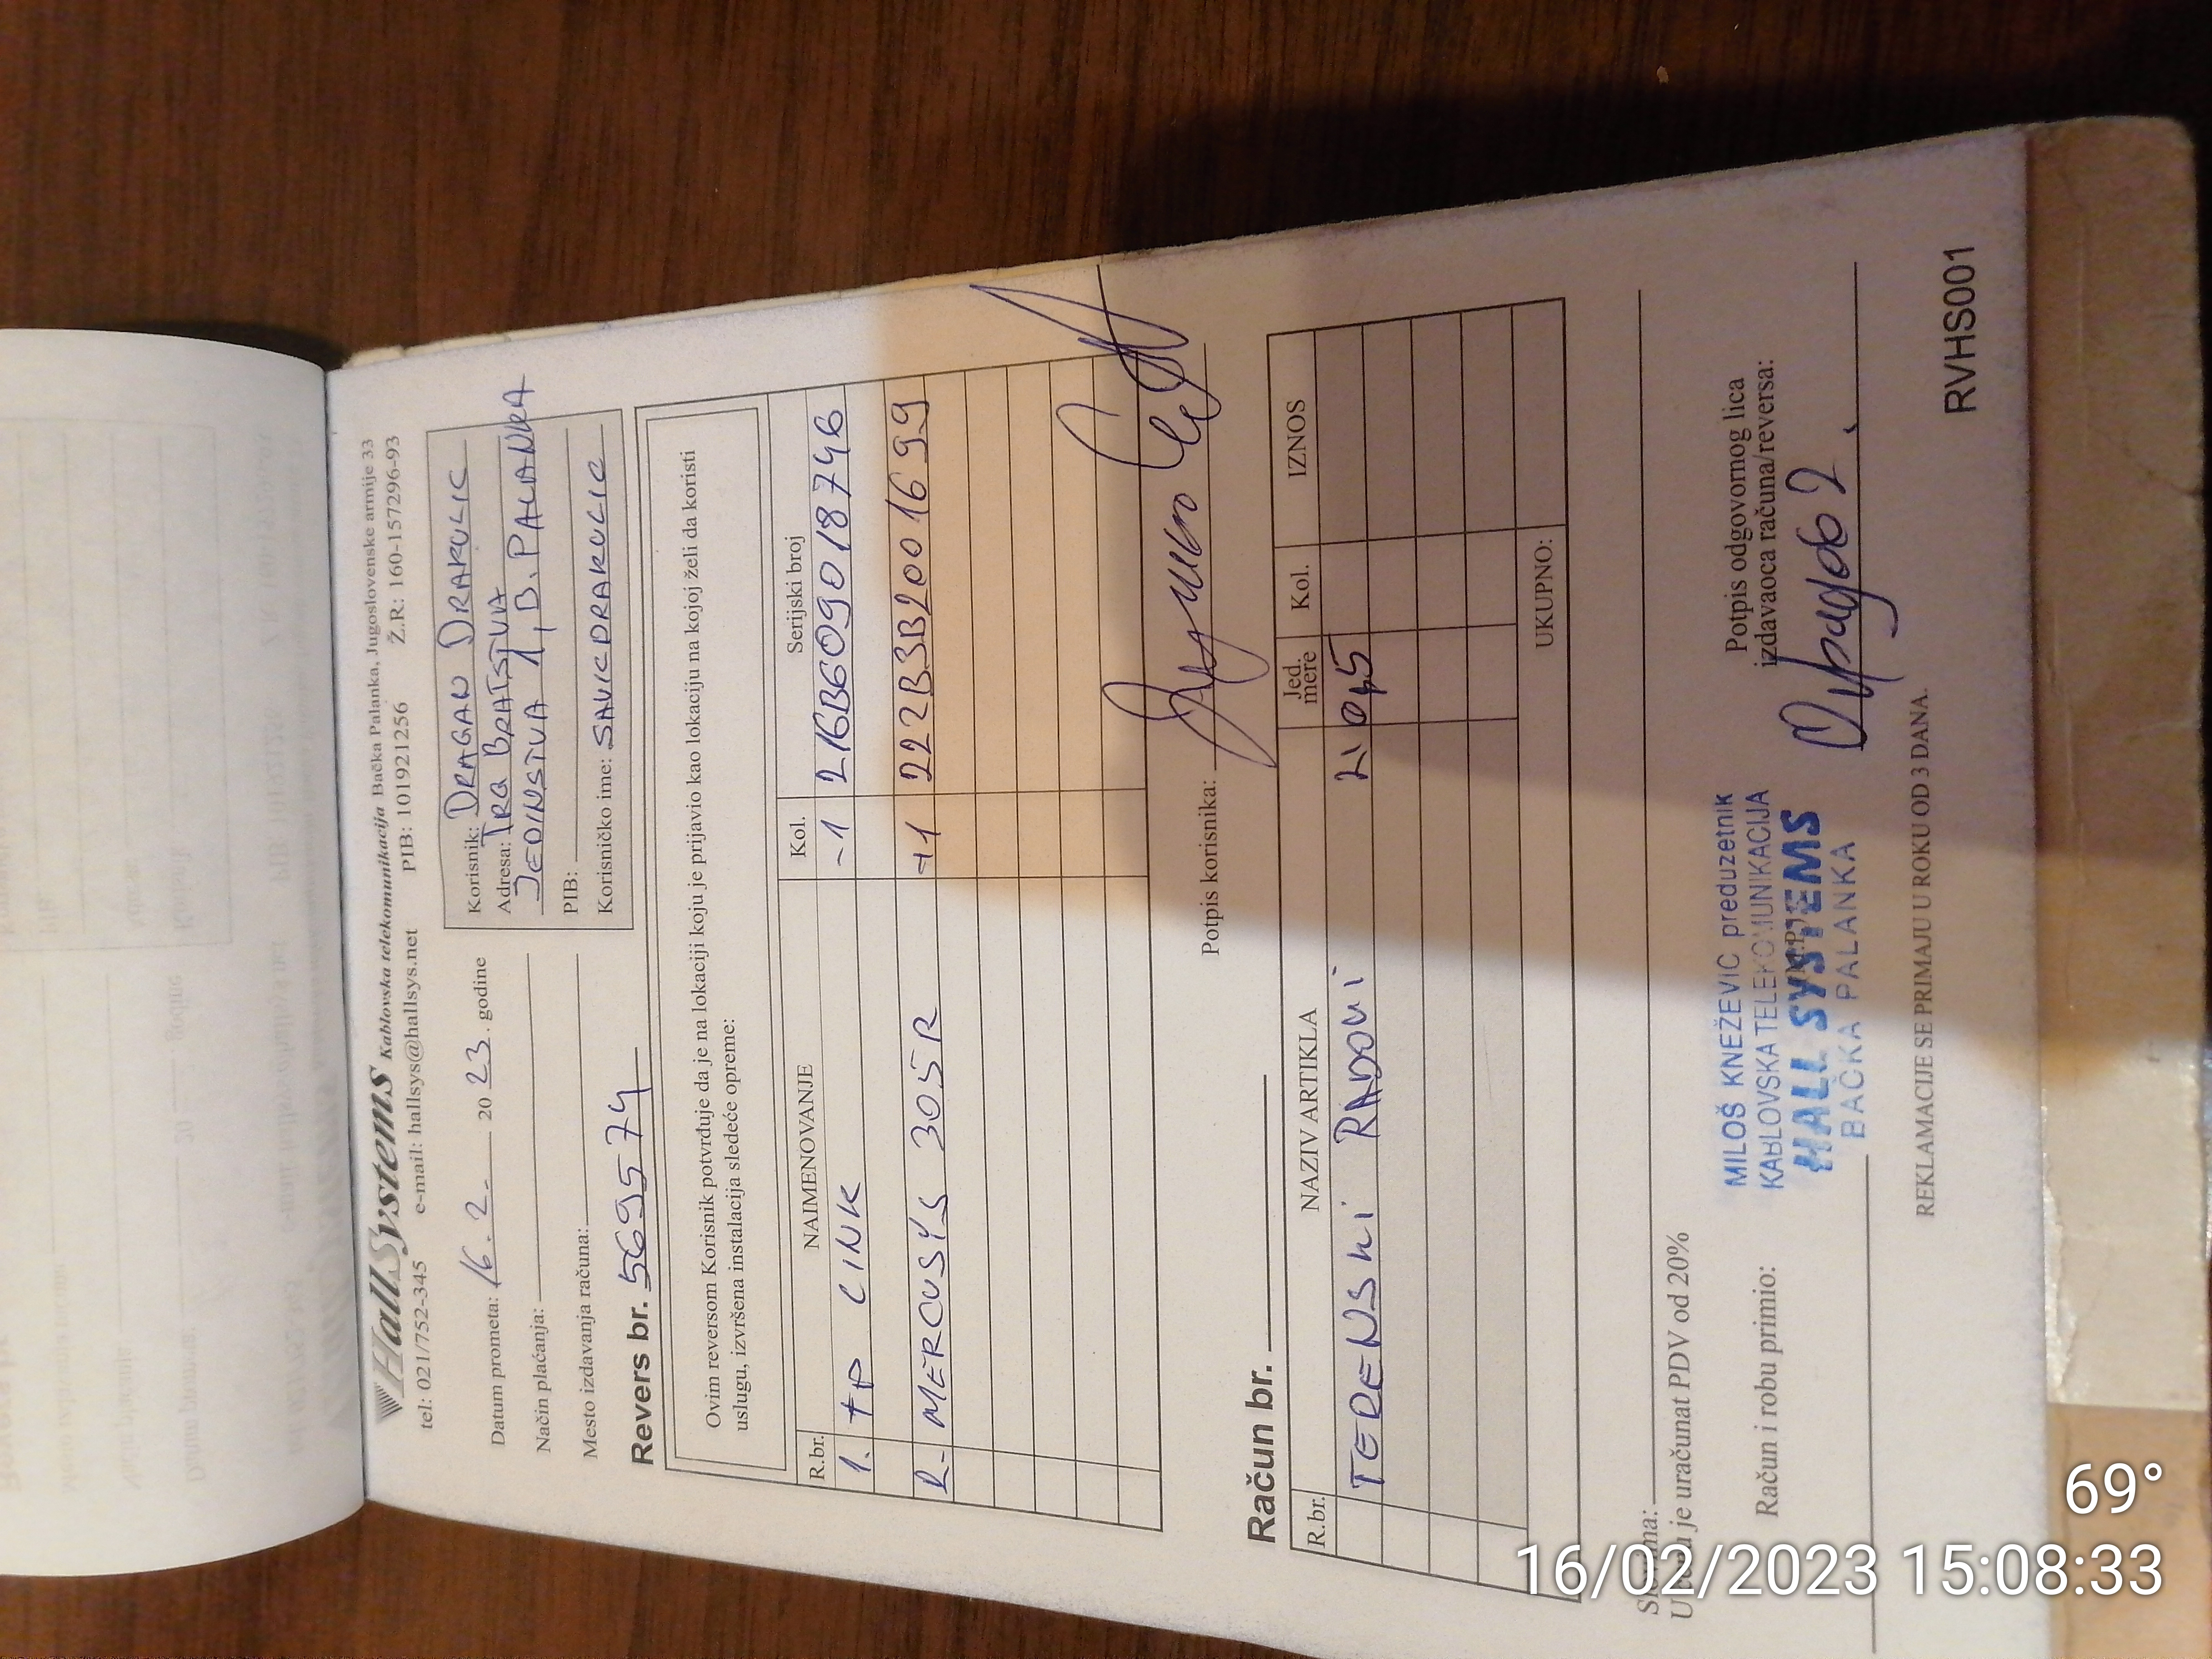 HallSystems Kablovska telekomunikacija Bačka Palanka, Jugoslovenske armije 33
tel: 021/752-345 e-mail: hallsys@hallsys.net PIB: 101921256 Ž.R: 160-157296-93
Datum prometa: 16. 2. 2023. godine
Način plaćanja:
Mesto izdavanja računa:
Korisnik: DRAGAN DRAKULIC
Adresa: TRG BRATSTVA
JEDINSTVA 1, B. PALANKA
PIB:
Korisničko ime: SAVICDRAKULIC
Revers br. 5695574
Ovim reversom Korisnik potvrđuje da je na lokaciji koju je prijavio kao lokaciju na kojoj želi da koristi
uslugu, izvršena instalacija sledeće opreme:
R.br. NAIMENOVANJE Kol. Serijski broj
1. TP LINK -1 216B609018746
R- MERCUSYS 305R +1 222B3B2001699
Potpis korisnika:
Račun br.
R.br. NAZIV ARTIKLA Jed. mere Kol. IZNOS
TERENSKI RADOVI 21 045
UKUPNO:
Slovima:
U je uračunat PDV od 20%
Račun i robu primio:
MILOŠ KNEŽEVIĆ preduzetnik
KABLOVSKA TELEKOMUNIKACIJA
HALL SYSTEMS
BAČKA PALANKA
Potpis odgovornog lica
izdavaoca računa/reversa:
REKLAMACIJE SE PRIMAJU U ROKU OD 3 DANA.
RVHS001
69°
16/02/2023 15:08:33